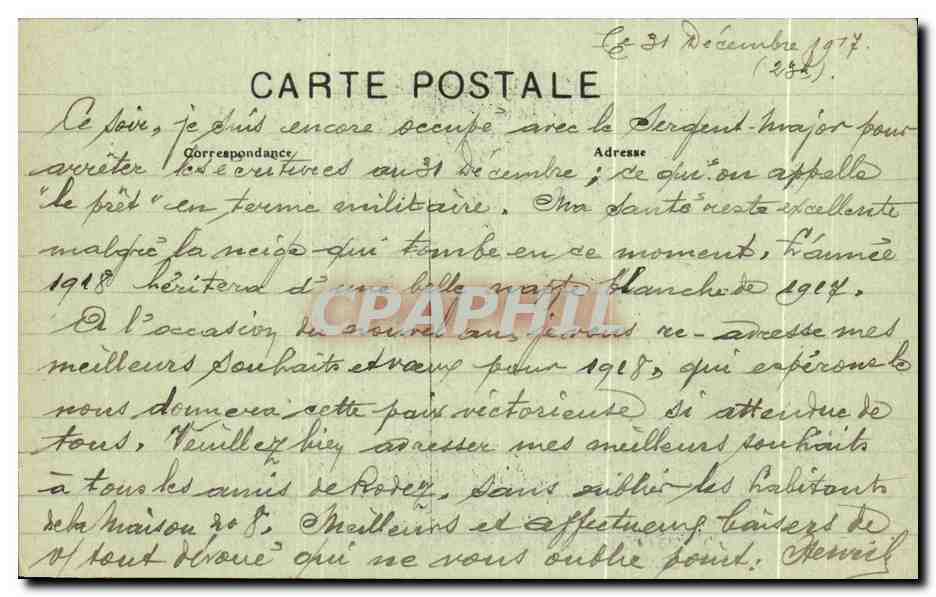 Ce 31 Décembre 1917.
(23h).
CARTE POSTALE
Ce soir, je suis encore occupé avec le Sergent-Major pour
Correspondance
Adresse
arrêter les écritures au 31 Décembre; ce qu'on appelle
"le prêt" en terme militaire. Ma santé reste excellente
malgré la neige qui tombe en ce moment. L'année
1918 héritera d'une belle nappe blanche de 1917.
CPAPHIL
A l'occasion du nouvel an, je vous re-adresse mes
meilleurs souhaits et voeux pour 1918, qui espérons le
nous donnera cette paix victorieuse si attendue de
tous. Veuillez bien adresser mes meilleurs souhaits
à tous les amis de Rodez, sans oublier les habitants
de la Maison no 8. Meilleurs et affectueux baisers de
v/ tout dévoué qui ne vous oublie point. Henri